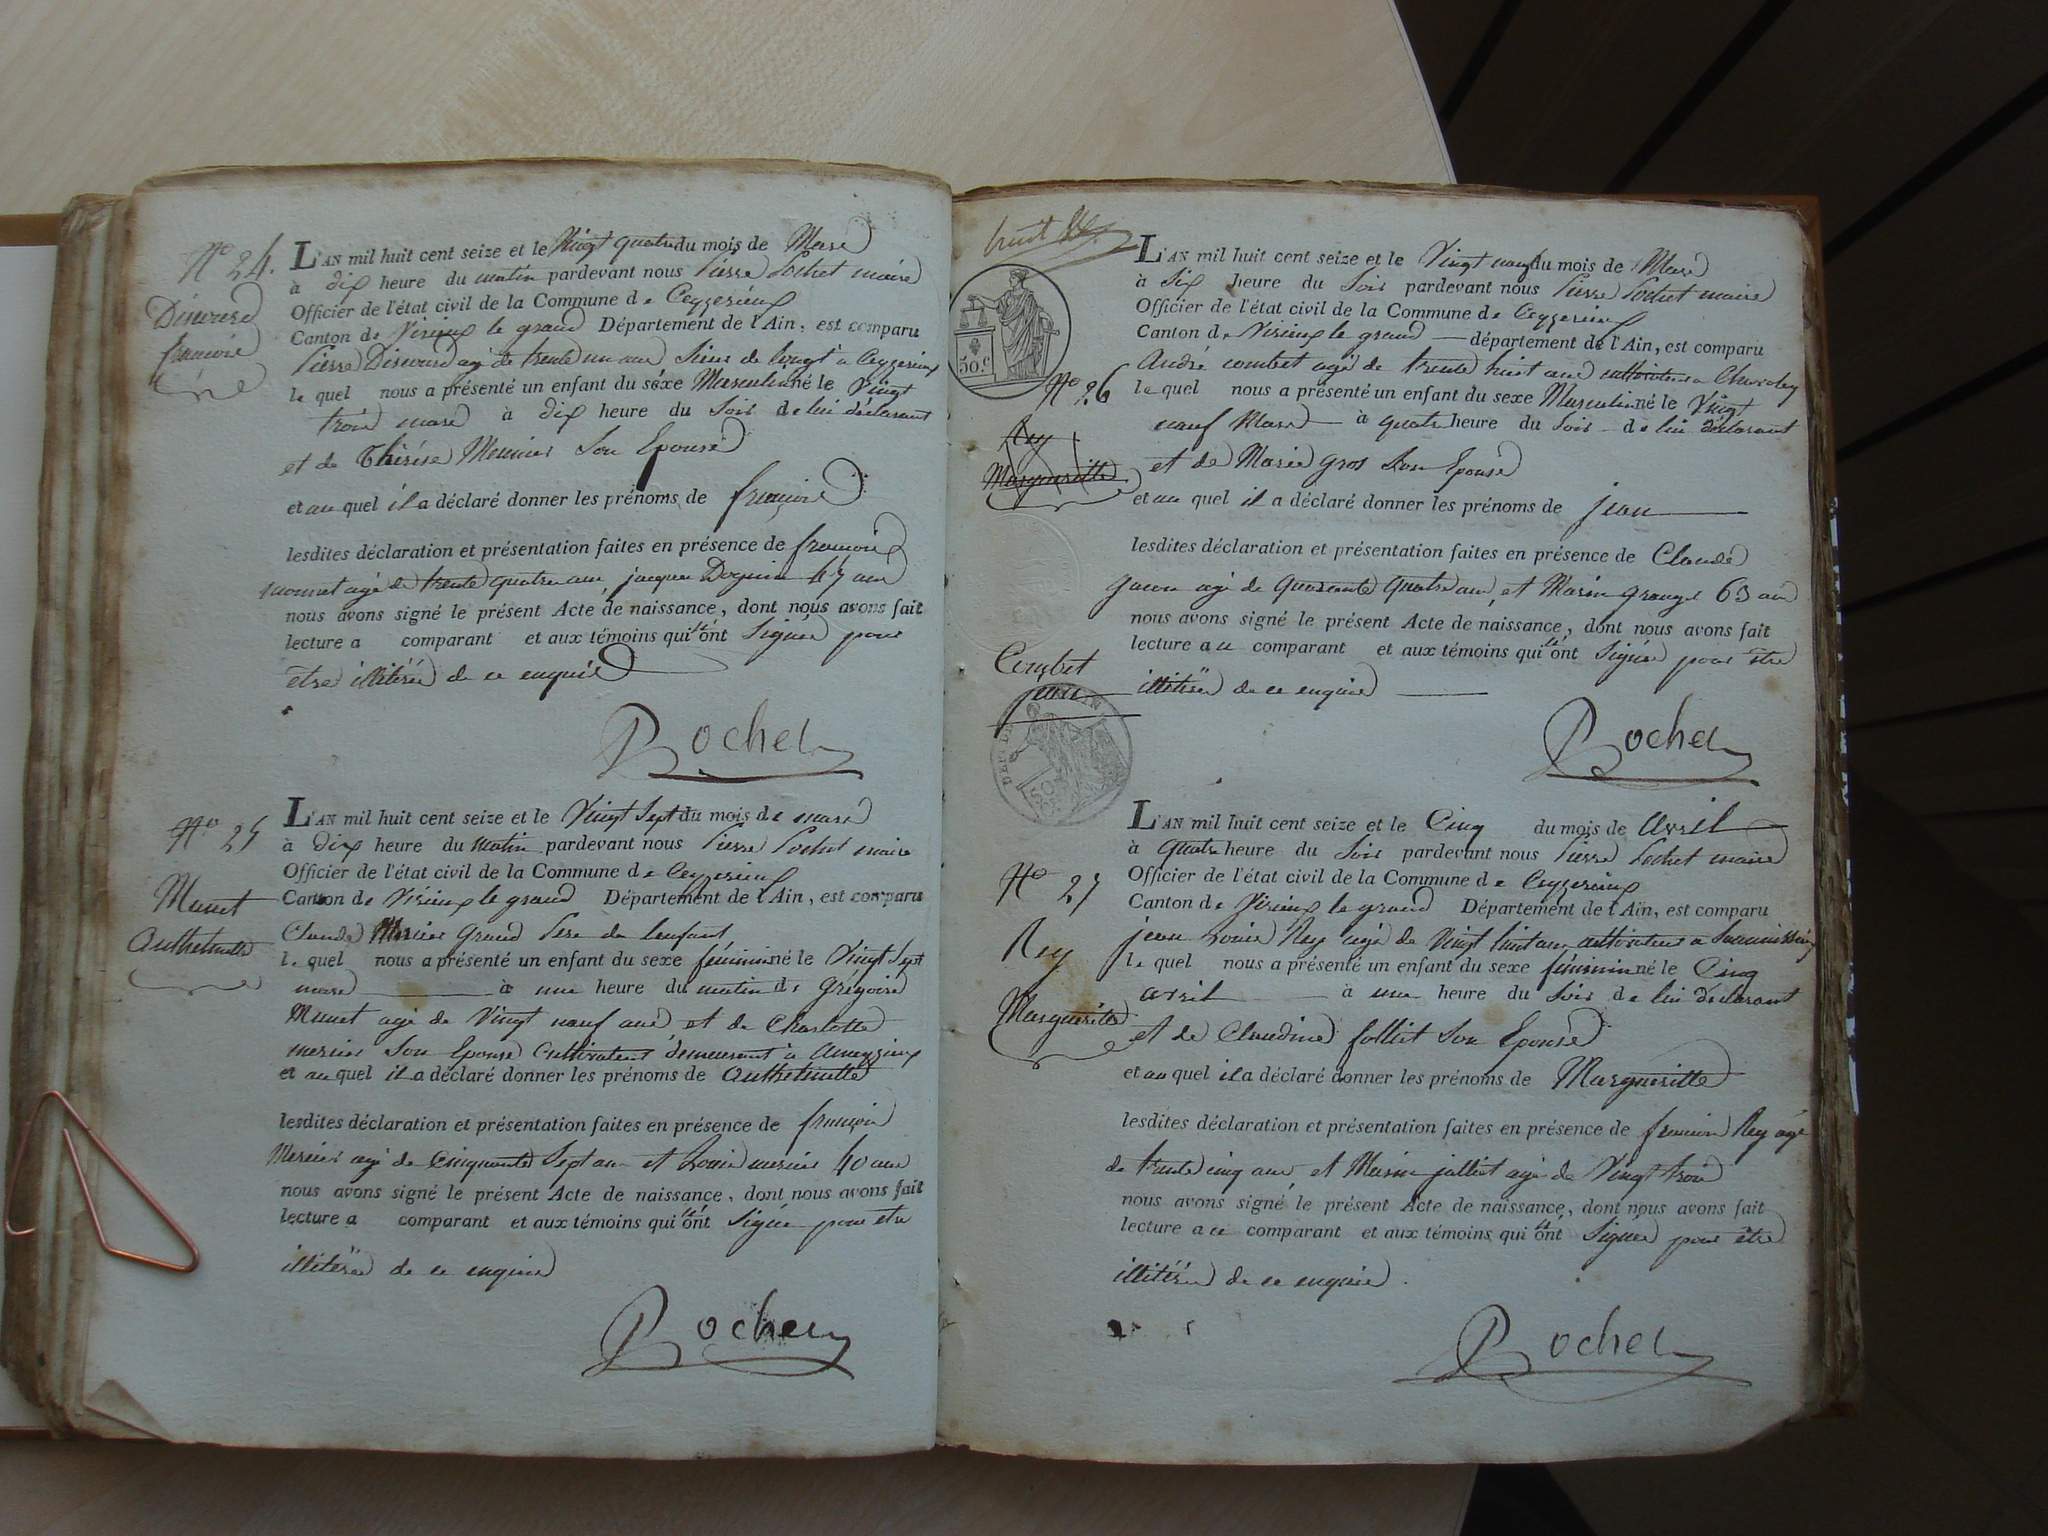 N.o 24.
françois
L'AN mil huit cent seize et le Vingt quatre du mois de Mars
à dix heure du matin pardevant nous Pierre Pochet maire
Officier de l'état civil de la Commune de Ceyzerieux
Canton de Virieux le grand Département de l'Ain, est comparu
Pierre agé de trente un ans a Ceyzerieux
le quel nous a présenté un enfant du séxe Masculin né le Vingt
trois mars à dix heure du Soir de lui déclarant
et de Thérèse Meunier Son Epouse
et au quel il a déclaré donner les prénoms de françois
lesdites déclaration et présentation faites en présence de françois
agé de trente quatre ans, jacques 47 ans
nous avons signé le présent Acte de naissance, dont nous avons fait
lecture a comparant et aux témoins qui n'ont Signés pour
etre illitérés de ce enquis
Pochet
N.o 25
Munet
Anthelmette
L'AN mil huit cent seize et le Vingt Sept du mois de mars
à dix heure du Matin pardevant nous Pierre Pochet maire
Officier de l'état civil de la Commune de Ceyzerieux
Canton de Virieux le grand Département de l'Ain, est comparu
Claude Mercier Grand Pere de lenfant
le quel nous a présenté un enfant du sexe féminin né le Vingt Sept
mars à une heure du matin de Grégoire
Munet agé de Vingt neuf ans et de Charlotte
mercier Son Epouse Cultivateurs demeurant à Ameyzieux
et au quel il a déclaré donner les prénoms de Anthelmette
lesdites déclaration et présentation faites en présence de françois
Mercier agé de Cinquante Sept ans et Louis mercier 40 ans
nous avons signé le présent Acte de naissance, dont nous avons fait
lecture a comparant et aux témoins qui n'ont Signés pour etre
illitérés de ce enquis
Pochet
huit
50.c
N.o 26
Rey
Marguerite
Combet
jean
L'AN mil huit cent seize et le Vingt neuf du mois de Mars
à Six heure du Soir pardevant nous Pierre Pochet maire
Officier de l'état civil de la Commune de Ceyzerieux
Canton de Virieux le grand département de l'Ain, est comparu
André combet agé de trente huit ans cultivateur a Chavoley
le quel nous a présenté un enfant du sexe Masculin né le Vingt
neuf Mars à quatre heure du Soir de lui déclarant
et de Marie Gros Son Epouse
et au quel il a déclaré donner les prénoms de jean
lesdites déclaration et présentation faites en présence de Claude
agé de quarante quatre ans, et Marin grange 63 ans
nous avons signé le présent Acte de naissance, dont nous avons fait
lecture au comparant et aux témoins qui n'ont Signés pour être
illitérés de ce enquis
Pochet
N.o 27
Rey
Marguerite
L'AN mil huit cent seize et le Cinq du mois de Avril
à quatre heure du Soir pardevant nous Pierre Pochet maire
Officier de l'état civil de la Commune de Ceyzerieux
Canton de Virieux le grand Département de l'Ain, est comparu
jean Louis Rey agé de Vingt huit ans cultivateur a
le quel nous a présenté un enfant du sexe féminin né le Cinq
avril à une heure du Soir de lui déclarant
et de Claudine folliet Son Epouse
et au quel il a déclaré donner les prénoms de Marguerite
lesdites déclaration et présentation faites en présence de françois Rey agé
de trente cinq ans, et Marin julliet agé de Vingt trois
nous avons signé le présent Acte de naissance, dont nous avons fait
lecture a ce comparant et aux témoins qui n'ont Signés pour être
illitérés de ce enquis.
Pochet